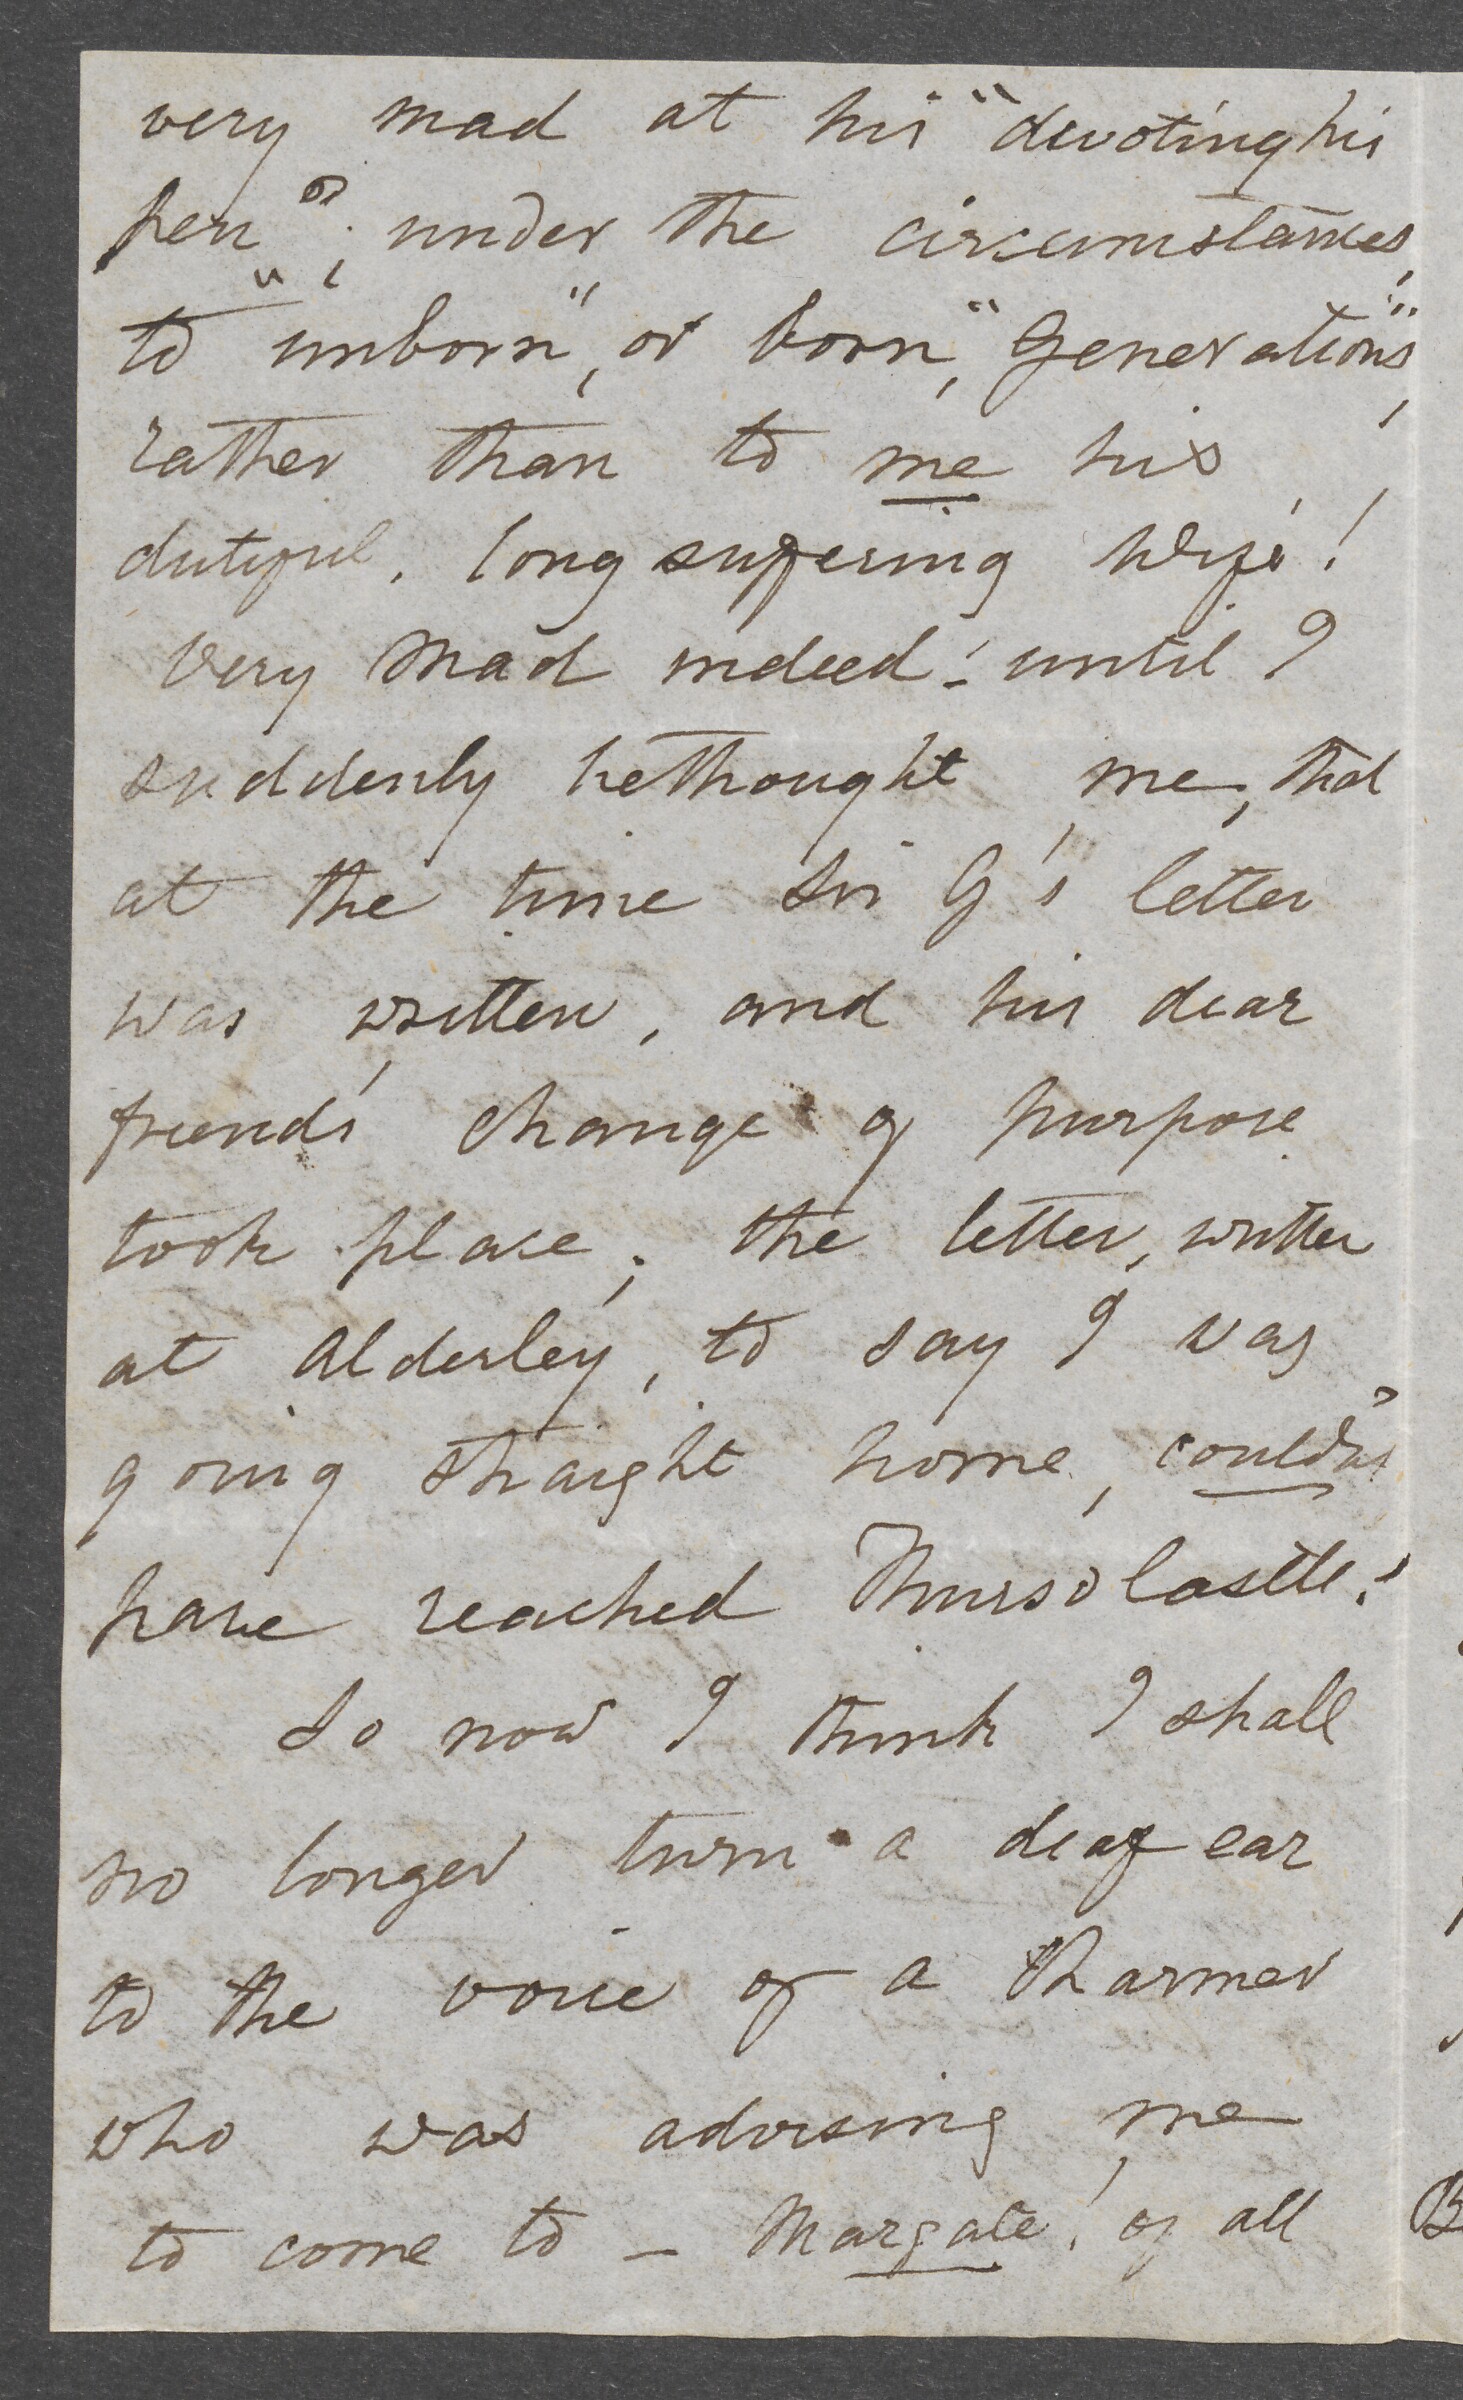 very mad at his "devoting his
pen", under the circumstances,
to "unborn", or born, "generations",
rather than to me his
dutiful, long suffering wife!
very mad indeed! until I
suddenly bethought me, that
at the time Sir G's letter
was written, and his dear
friend's change of purpose
took place; the letter, written
at Alderley, to say I was
going straight home, couldn't
have reached Thurso Castle!
So now I think I shall
no longer turn a deaf ear
to the voice of a charmer
who was advising me
to come to – Margate! of all